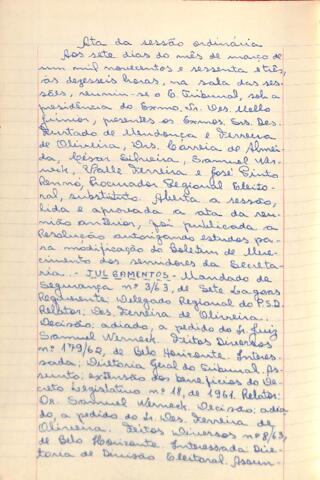 Ata da sessão ordinária
Aos sete dias do mês de março de
um mil novecentos e sessenta e três,
às dezesseis horas, na sala das ses-
sões, reuniu-se o E. Tribunal, sob a
presidência do Exmo. Sr. Des. Mello
Júnior, presentes os Exmos. Srs. Des.
Furtado de Mendonça e Ferreira
de Oliveira, Drs. Correia de Almei-
da, César Silveira, Samuel Wer-
neck, Valle Ferreira e José Pinto
Renno, Procurador Regional Eleito-
ral, substituto. Aberta a sessão,
lida e aprovada a ata da reu-
nião anterior, foi publicada a
Resolução autorizando estudos pa-
ra modificação do Boletim de Mere-
cimento dos servidores da Secreta-
ria. - JULGAMENTOS - Mandado de
Segurança nº 3/63, de Sete Lagoas
Requerente: Delegado Regional do P.S.D.
Relator: Des. Ferreira de Oliveira.
Decisão: adiado, a pedido do Sr. Juiz
Samuel Werneck. Feitos Diversos
nº 179/62, de Belo Horizonte. Interes-
sada: Diretoria Geral do Tribunal. As-
sunto: extensão dos benefícios do De-
creto Legislativo nº 18, de 1961. Relator:
Dr. Samuel Werneck. Decisão: adia-
do, a pedido do Sr. Des. Ferreira de
Oliveira. Feitos Diversos nº 8/63,
de Belo Horizonte. Interessada: Dire-
toria de Divisão Eleitoral. Assun-